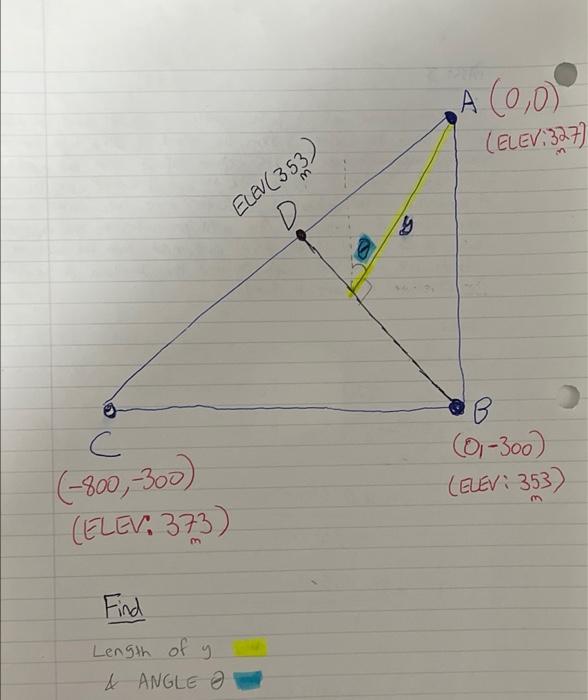 A (0,0)
(ELEV: 327)
m
ELEV(353)
m
D
y
θ
B
C
(0,-300)
(-800,-300)
(ELEV: 353)
m
(ELEV: 373)
m
Find
Length of y
& ANGLE θ